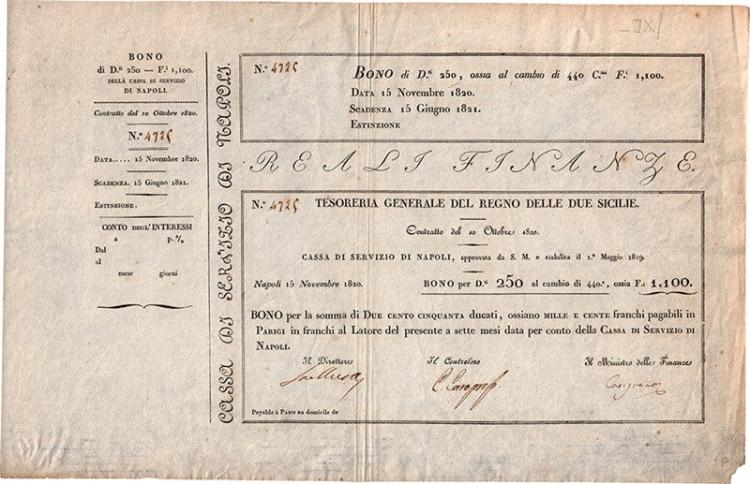 BONO
di D.ti 250 — F.i 1,100.
DELLA CASSA DI SERVIZIO
DI NAPOLI.
Contratto del 10 Ottobre 1820.
N.o 4725
DATA..... 15 Novembre 1820.
SCADENZA. 15 Giugno 1821.
ESTINZIONE.
CONTO DEGL'INTERESSI
a p.%
Dal
al
mese giorni
CASSA DI SERVIZIO DI NAPOLI.
N.o 4725
BONO di D.ti 250, ossia al cambio di 440 C.mi F.i 1,100.
DATA 15 Novembre 1820.
SCADENZA 15 Giugno 1821.
ESTINZIONE
REALI FINANZE.
N.o 4725 TESORERIA GENERALE DEL REGNO DELLE DUE SICILIE.
Contratto del 10 Ottobre 1820.
CASSA DI SERVIZIO DI NAPOLI, approvata da S. M. e stabilita il 1.o Maggio 1819.
Napoli 15 Novembre 1820. BONO per D.ti 250 al cambio di 440.c, ossia F.i 1,100.
BONO per la somma di DUE CENTO CINQUANTA ducati, ossiano MILLE E CENTE franchi pagabili in
PARIGI in franchi al Latore del presente a sette mesi data per conto della CASSA DI SERVIZIO DI
NAPOLI.
Il Direttore Il Controloro Il Ministro delle Finanze
Carignano
Payable à PARIS au domicile de